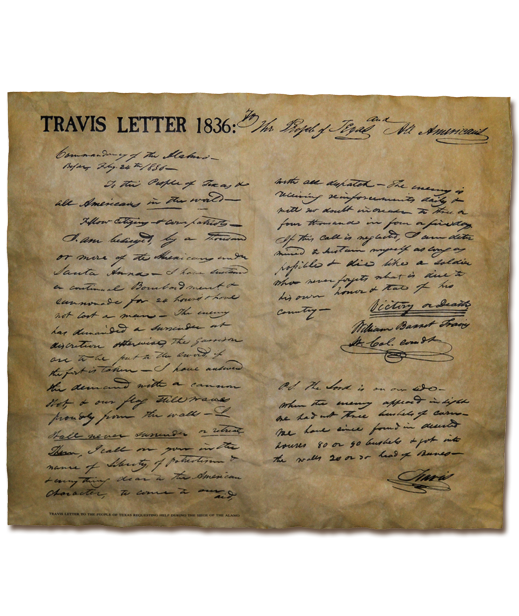 TRAVIS LETTER 1836: To The People of Texas and All Americans
Commandancy of the Alamo—
Bejar, Feby 24th 1836—
To the People of Texas &
all Americans in the world—
Fellow citizens & compatriots—
I am besieged, by a thousand
or more of the Mexicans under
Santa Anna— I have sustained
a continual Bombardment &
cannonade for 24 hours & have
not lost a man— The enemy
has demanded a surrender at
discretion, otherwise, the garrison
are to be put to the sword, if
the fort is taken— I have answered
the demand with a cannon
shot, & our flag still waves
proudly from the wall— I
shall never surrender or retreat
Then, I call on you in the
name of Liberty, of patriotism &
everything dear to the American
character, to come to our aid,
with all dispatch— The enemy is
receiving reinforcements daily &
will no doubt increase to three or
four thousand in four or five days.
If this call is neglected, I am deter
mined to sustain myself as long as
possible & die like a soldier
who never forgets what is due to
his own honor & that of his
country—
Victory or Death
William Barret Travis
Lt. Col. comdt
P.S. The Lord is on our side—
When the enemy appeared in sight
we had not three bushels of corn—
We have since found in deserted
houses 80 or 90 bushels & got into
the walls 20 or 30 head of Beeves—
Travis